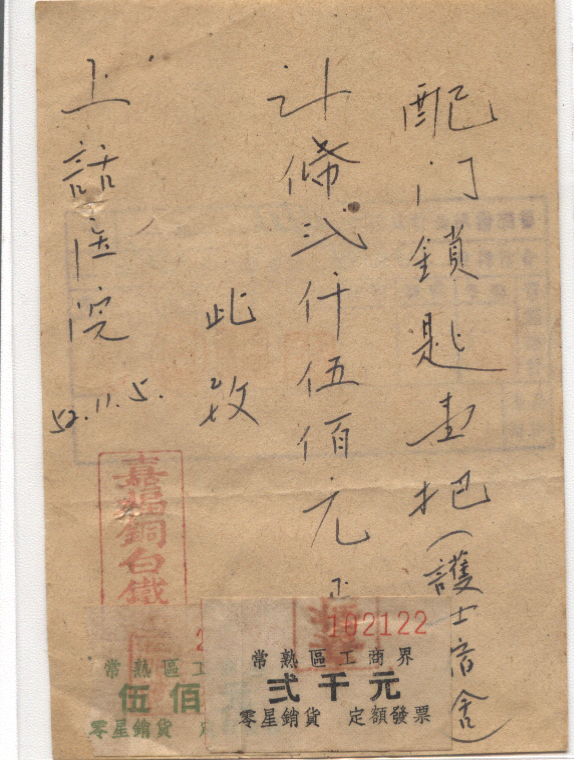 配门鎖匙壹把(護士宿舍)
计條弍仟伍佰元正
此致
上 医院
52.11.5.
嘉 銅白鐵
102122
常熟區工商界
弍千元
零星銷貨 定額發票
2
常熟區工
伍佰
零星銷貨 定